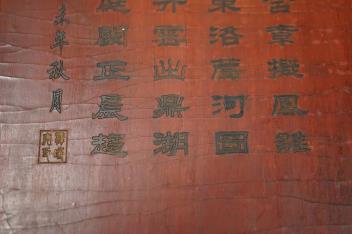 章擬鳳雛
東洛薦河圖
升雲出鼎湖
庭闢正晨趨
未年秋月